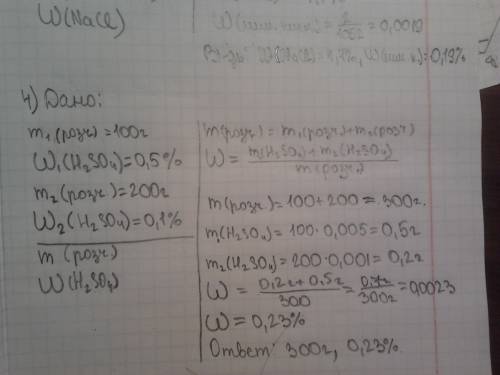 W(NaCl)
= 0,0019
= 0,19%
4) Дано:
m₁(розч)=100г
W₁(H₂SO₄)=0,5%
m₂(розч)=200г
W₂(H₂SO₄)=0,1%
m (розч)
W(H₂SO₄)
m(розч) = m₁(розч)+m₂(розч)
W = m₁(H₂SO₄)+m₂(H₂SO₄) / m(розч)
m(розч)=100+200=300г.
m₁(H₂SO₄)=100·0,005=0,5г
m₂(H₂SO₄)=200·0,001=0,2г
W = 0,2г+0,5г / 300 = 0,7г / 300г = 0,0023
W = 0,23%
Ответ: 300г, 0,23%